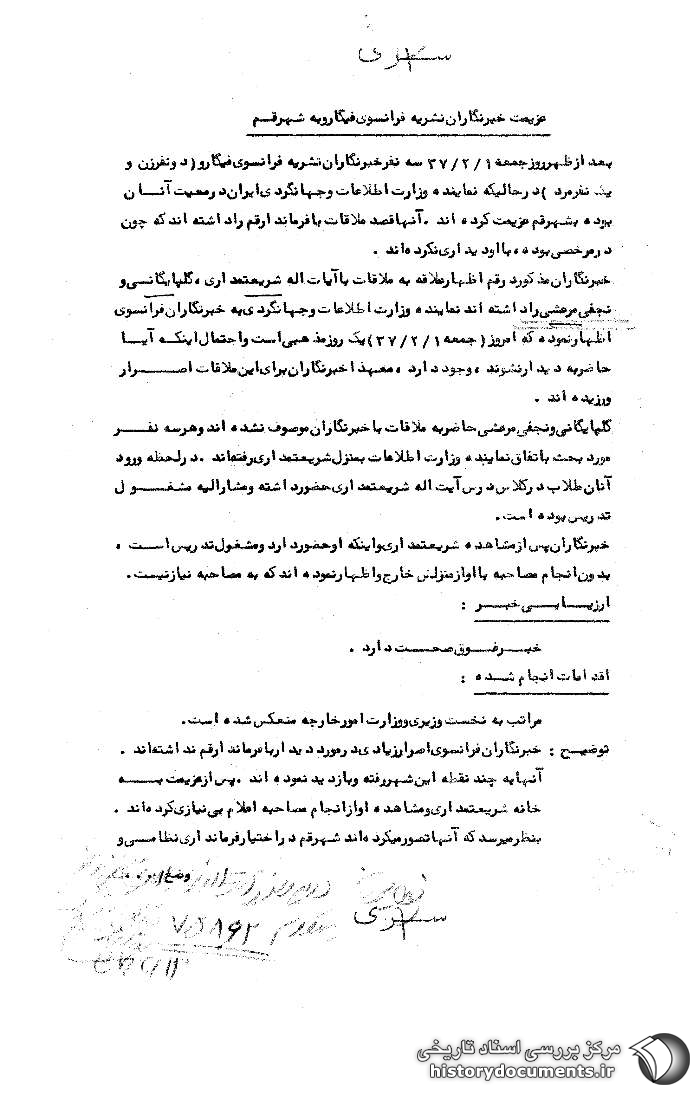 سری
عزیمت خبرنگاران نشریه فرانسوی فیگاروبه شهرقم
بعد ازظهرروزجمعه ۳۷/۲/۱ سه نفرخبرنگاران نشریه فرانسوی فیگارو(دونفرزن و
یک نفرمرد)درحالیکه نماینده وزارت اطلاعات وجهانگردی ایران درمعیت آنان
بوده بشهرقم عزیمت کرده اند .آنهاقصد ملاقات بافرماند ارقم راد اشته اند که چون
درمرخصی بوده ،بااود ید اری نکرده اند .
خبرنگاران مذ کورد رقم اظهارعلاقه به ملاقات باآیات اله شریعتمد اری ،گلپایگانی و
نجفی مرعشی راد اشته اند نماینده وزارت اطلاعات وجهانگردی به خبرنگاران فرانسوی
اظهارنموده که امروز(جمعه ۳۷/۲/۱)یک روزمذ هبی است واحتمال اینکه آیا
حاضربه د ید ارنشوند ،وجود د ارد ،معهذ اخبرنگاران برای این ملاقات اصرار
ورزیده اند .
گلپایگانی ونجفی مرعشی حاضربه ملاقات باخبرنگاران موصوف نشده اند وهرسه نفر
مورد بحث باتفاق نماینده وزارت اطلاعات بمنزل شریعتمد اری رفته اند .د رلحظه ورود
آنان طلاب د رکلاس د رس آیت اله شریعتمد اری حضورد اشته ومشارالیه مشغول
تد ریس بوده است.
خبرنگاران پس ازمشاهده شریعتمد اری واینکه اوحضورد ارد ومشغول تد ریس است ،
بد ون انجام مصاحبه بااوازمنزلش خارج واظهارنموده اند که به مصاحبه نیازنیست.
ارزیابی خبر :
خبرفوق صحت د ارد .
اقد امات انجام شده :
مراتب به نخست وزیری ووزارت امورخارجه منعکس شده است.
توضیح : خبرنگاران فرانسوی اصرارزیاد ی د رمورد د ید اربافرماند ارقم ند اشته اند .
آنهابه چند نقطه این شهررفته وبازد ید نموده اند .پس ازعزیمت به
خانه شریعتمد اری ومشاهده اوازانجام مصاحبه اعلام بی نیازی کرده اند .
بنظرمیرسد که آنهاتصورمیکرده اند شهرقم د راختیارفرماند اری نظامی و
وضع
سری
۷۵۸۶۲
مرکز بررسی اسناد تاریخی
historydocuments.ir